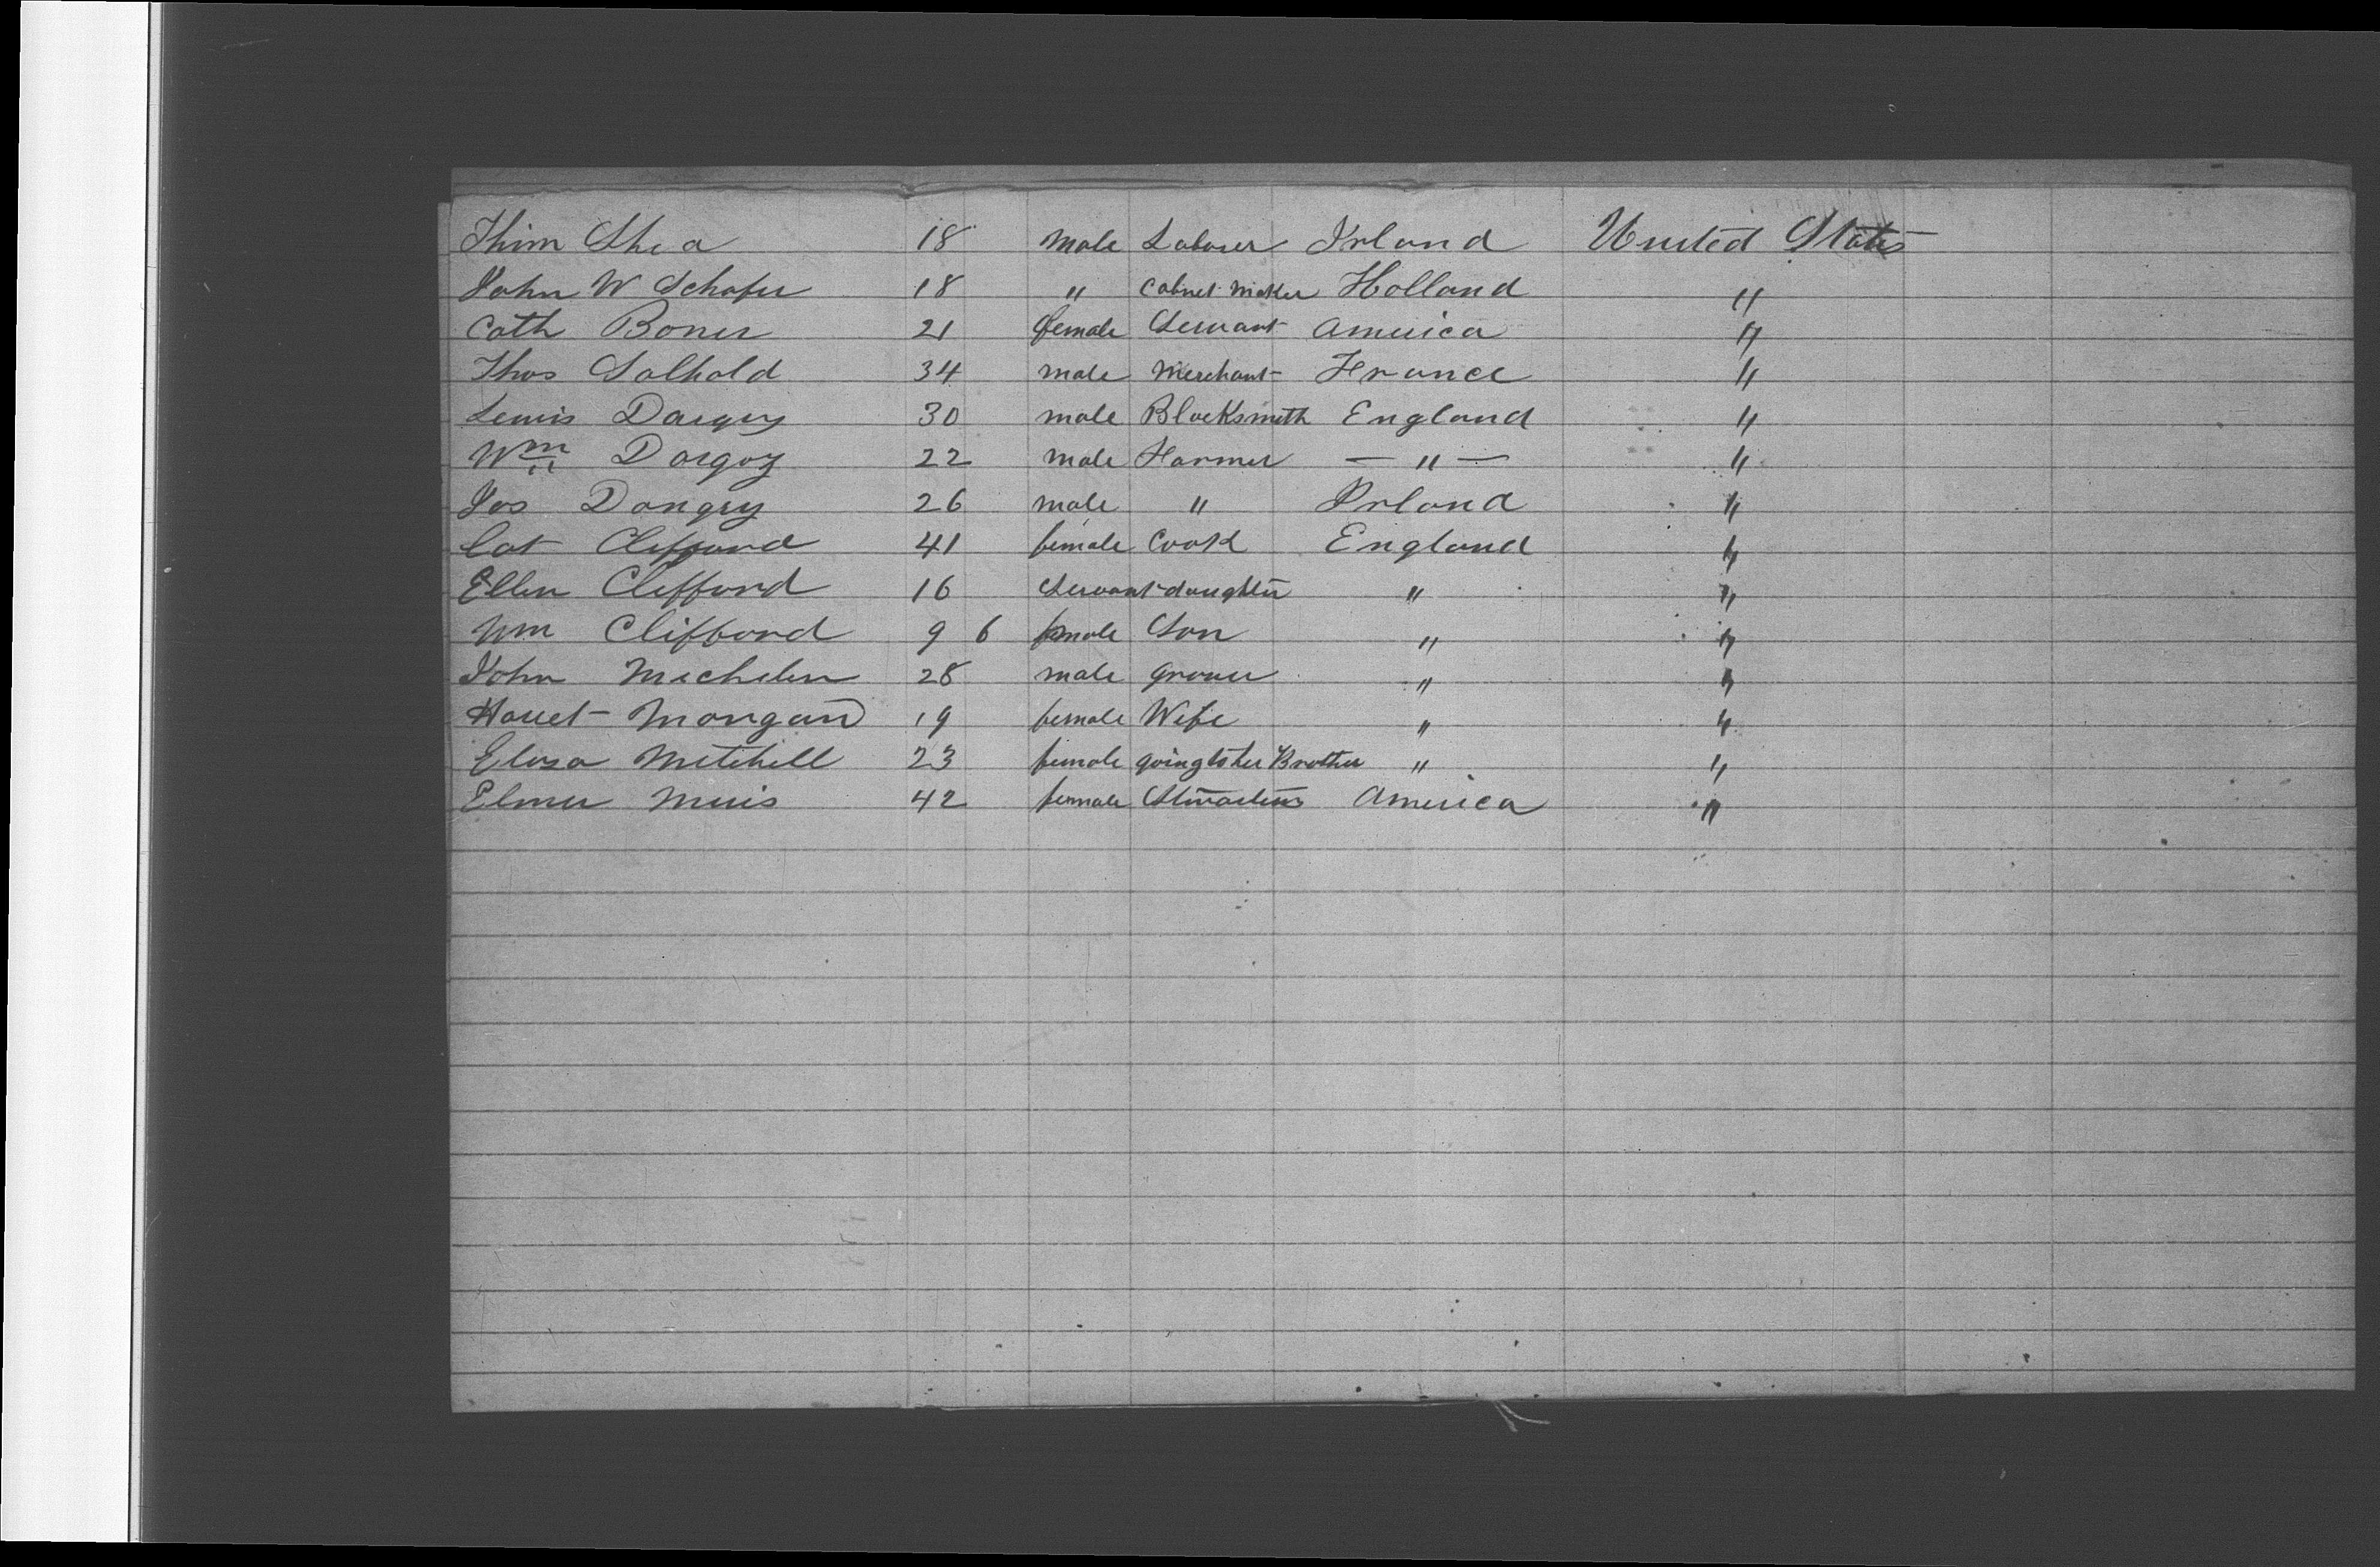 Thim Shea 18 male Labourer Irland United States
John W Schafer 18 " Cabnet Maker Holland "
Cath Boner 21 female Servant America "
Thos Salhold 34 male Merchant France "
Lewis Dargry 30 male Blacksmith England "
Wm Dargoy 22 male Farmer — " — "
Jos Dangry 26 male " Irland "
Cat Clifford 41 female Cook England "
Ellen Clifford 16 Servant daughter " "
Wm Clifford 9 6 male Son " "
John Mechelen 28 male " "
Harret Morgan 19 female Wife " "
Elisa Mitchell 23 female going to her Brother " "
Elmer Muis 42 female America "